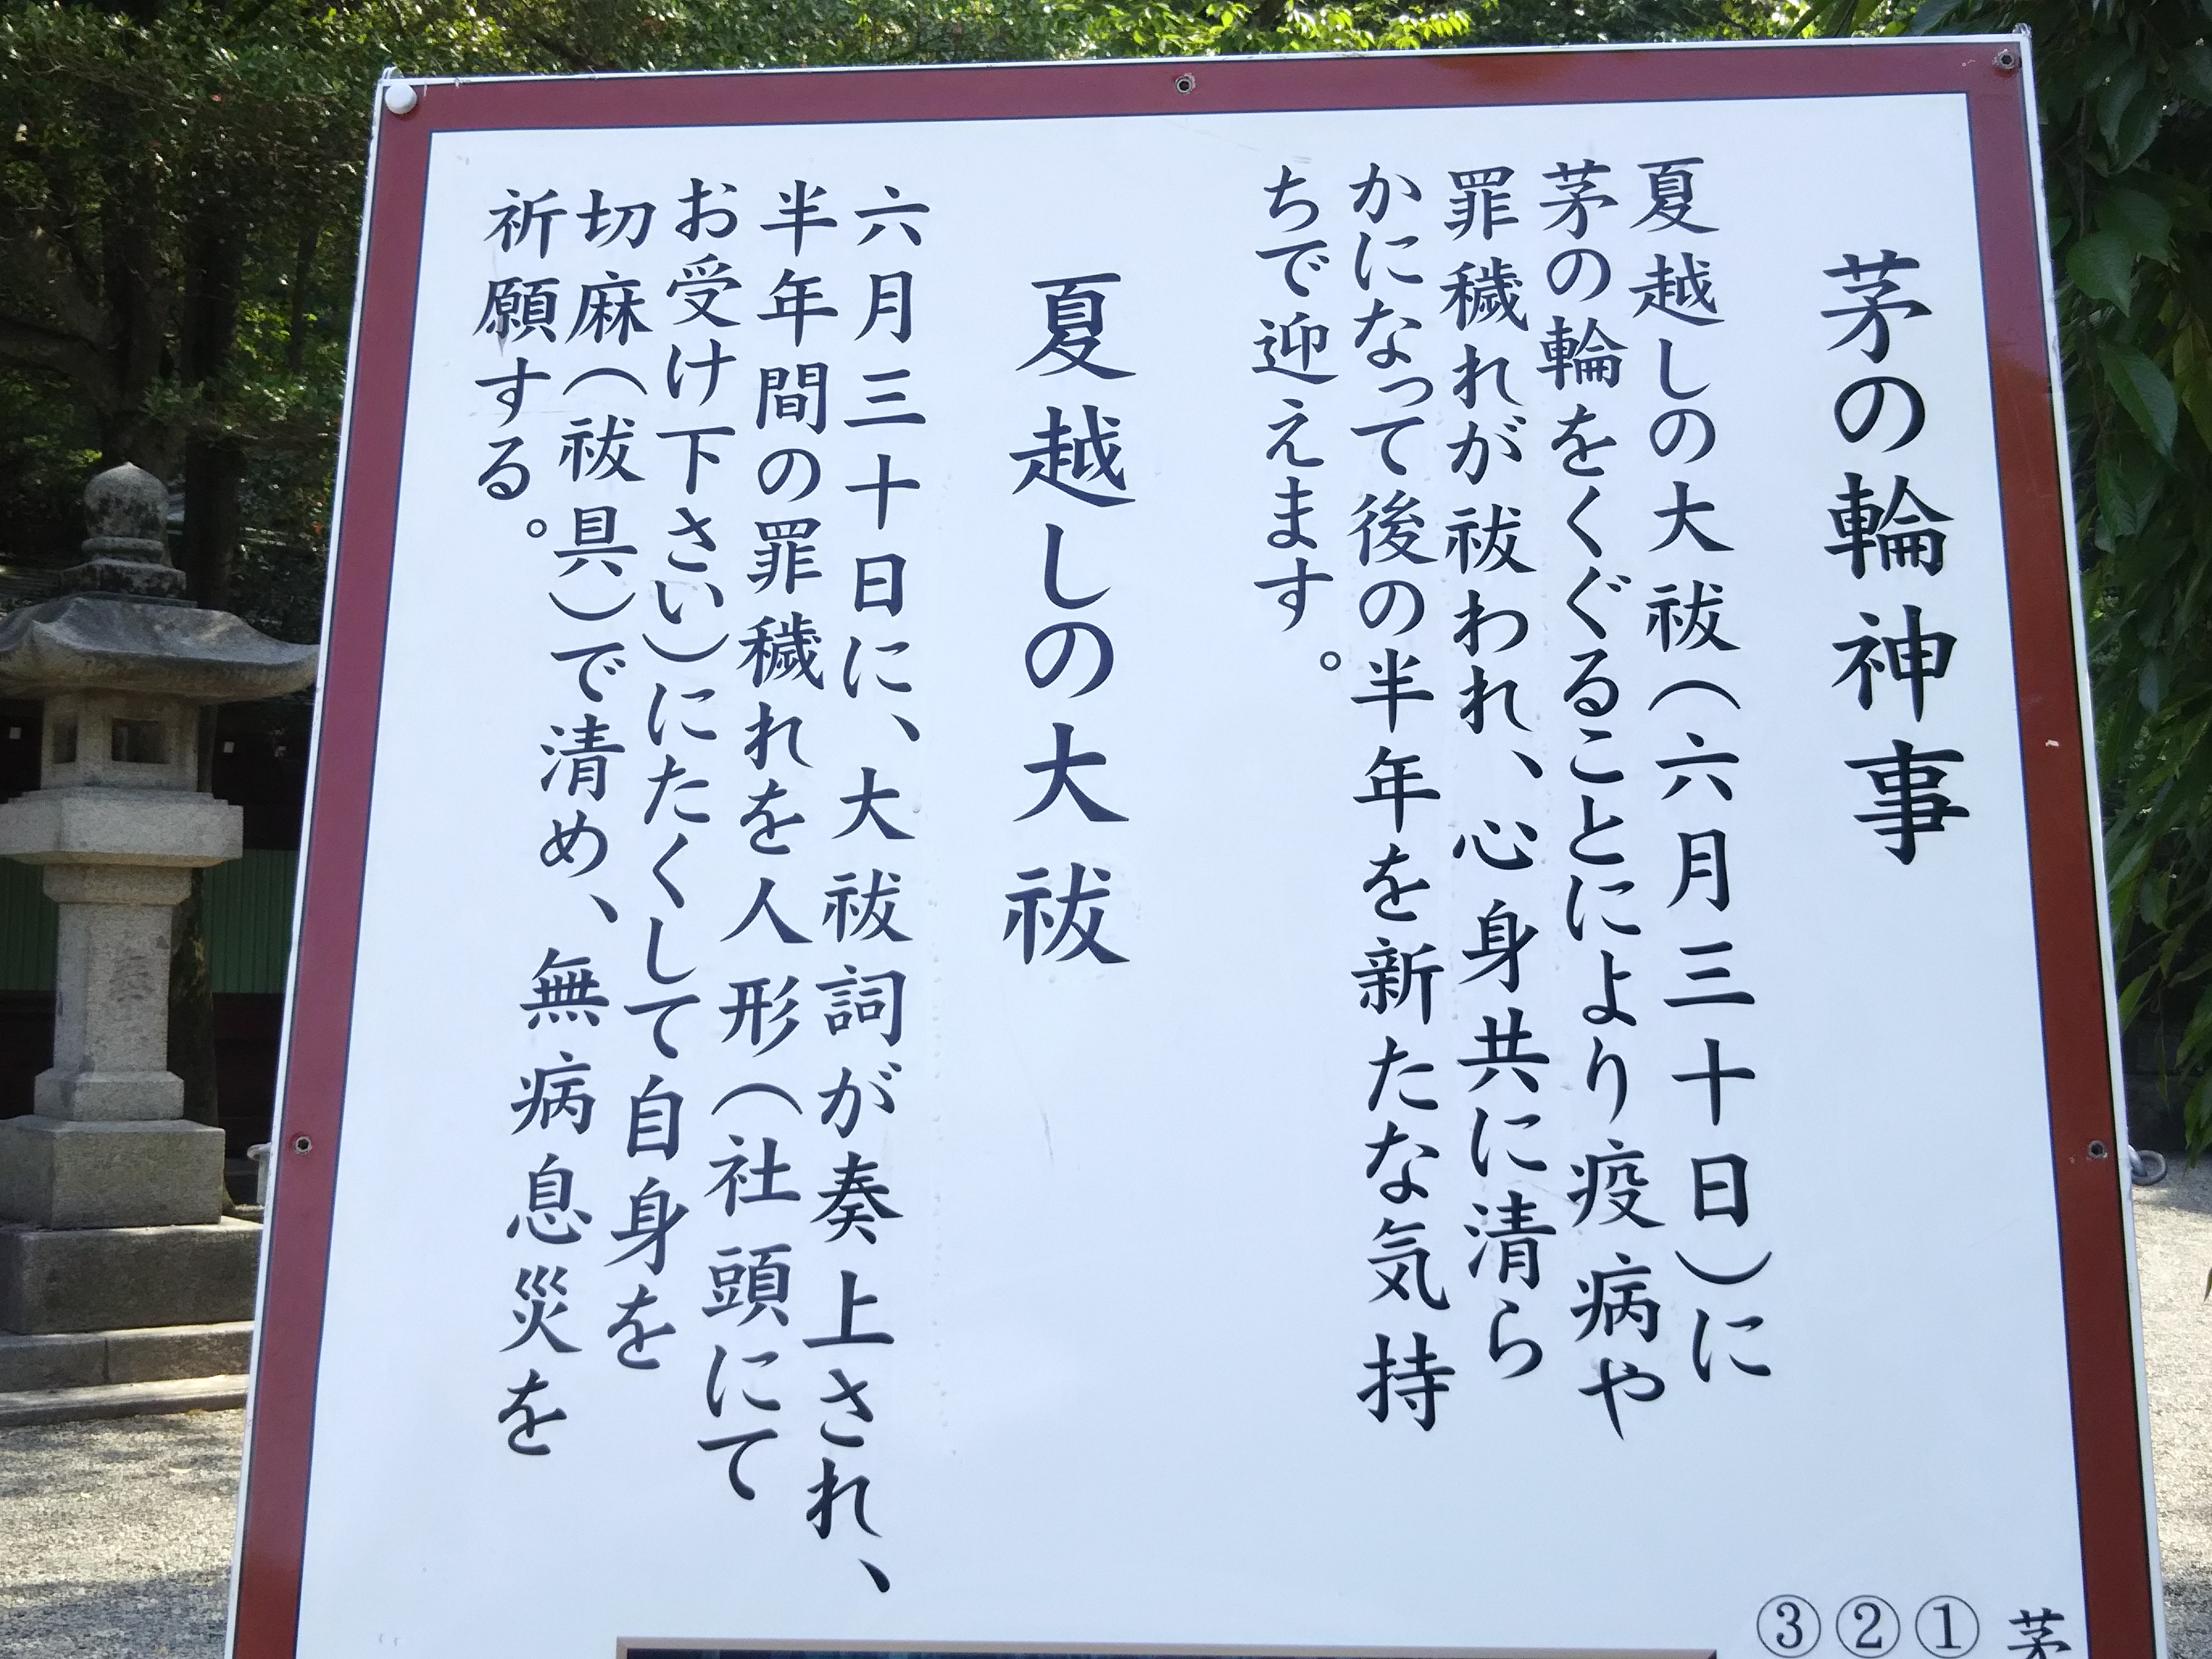 茅の輪神事
夏越しの大祓（六月三十日）に
茅の輪をくぐることにより疫病や
罪穢れが祓われ、心身共に清ら
かになって後の半年を新たな気持
ちで迎えます。
夏越しの大祓
六月三十日に、大祓詞が奏上され、
半年間の罪穢れを人形（社頭にて
お受け下さい）にたくして自身を
切麻（祓具）で清め、無病息災を
祈願する。
茅
①
②
③